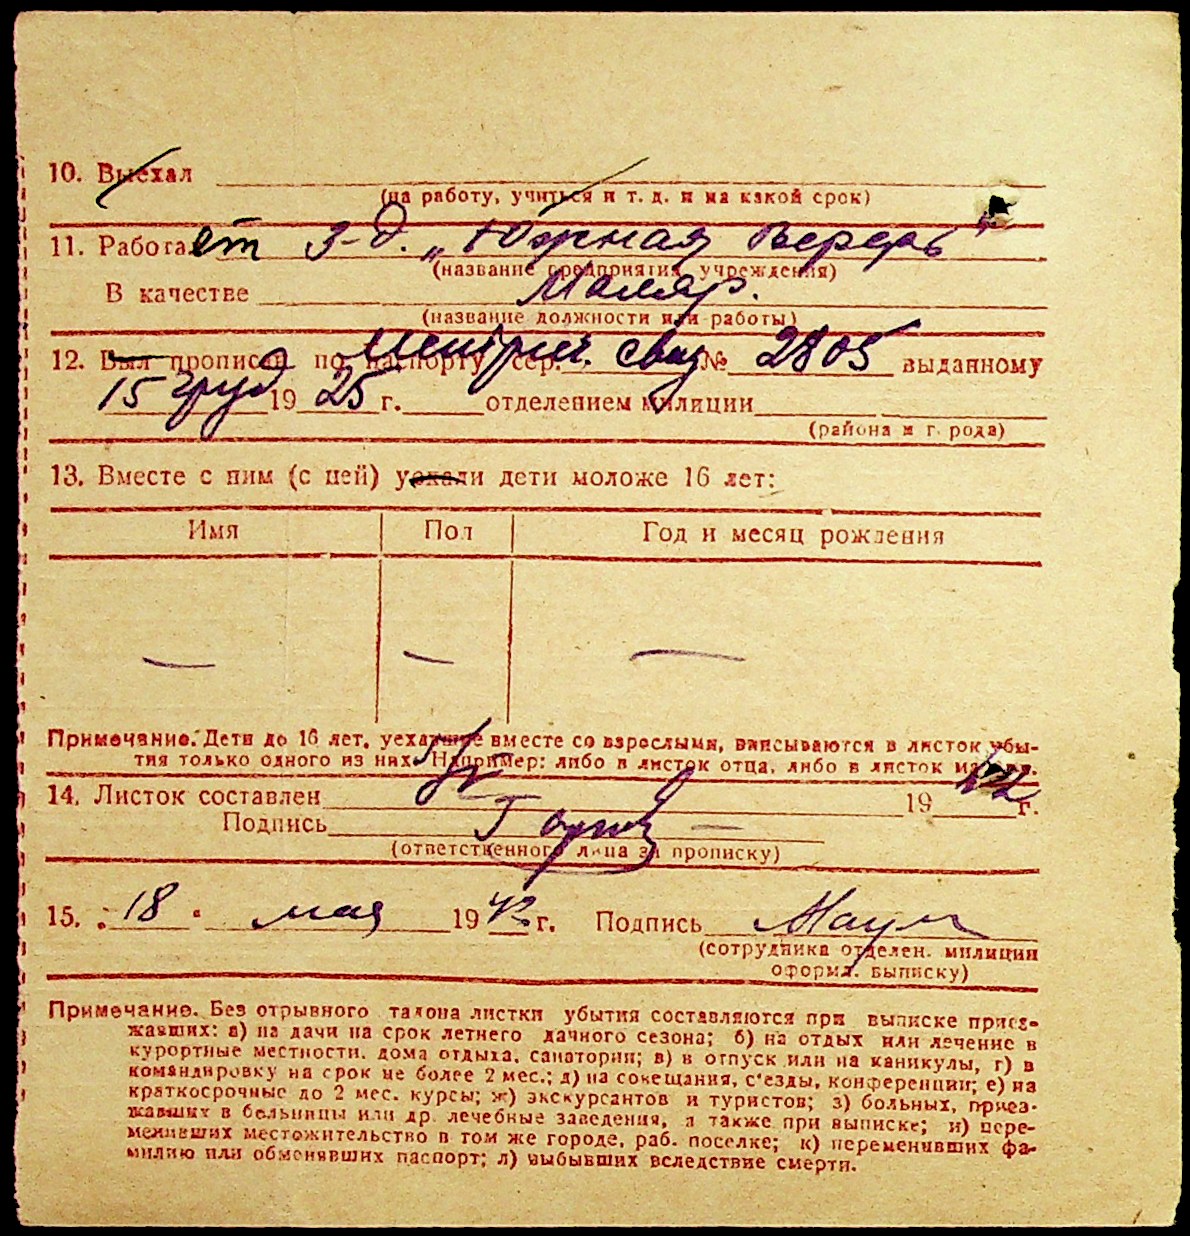 10. Выехал
(на работу, учиться и т. д. и на какой срок)
11. Работает з-д. „Южная Верфь"
(название предприятия, учреждения)
В качестве Маляр.
(название должности или работы)
12. Был прописан по паспорту Метрич. свид № 2805 выданному
сер.
15 груд 1925 г. отделением милиции
(района и города)
13. Вместе с ним (с ней) уехали дети моложе 16 лет:
Имя Пол Год и месяц рождения
— — —
Примечание. Дети до 16 лет, уехавшие вместе со взрослыми, вписываются в листок убы-
тия только одного из них. Например: либо в листок отца, либо в листок матери.
14. Листок составлен 5/V 1942 г.
Подпись
(ответственного лица за прописку)
15. „18" мая 1942 г. Подпись
(сотрудника отделен. милиции
оформл. выписку)
Примечание. Без отрывного талона листки убытия составляются при выписке приез-
жавших: а) на дачи на срок летнего дачного сезона; б) на отдых или лечение в
курортные местности, дома отдыха, санатории; в) в отпуск или на каникулы, г) в
командировку на срок не более 2 мес.; д) на совещания, с'езды, конференции; е) на
краткосрочные до 2 мес. курсы; ж) экскурсантов и туристов; з) больных, приез-
жавших в больницы или др. лечебные заведения, а также при выписке; и) пере-
менивших местожительство в том же городе, раб. поселке; к) переменивших фа-
милию или обменявших паспорт; л) выбывших вследствие смерти.